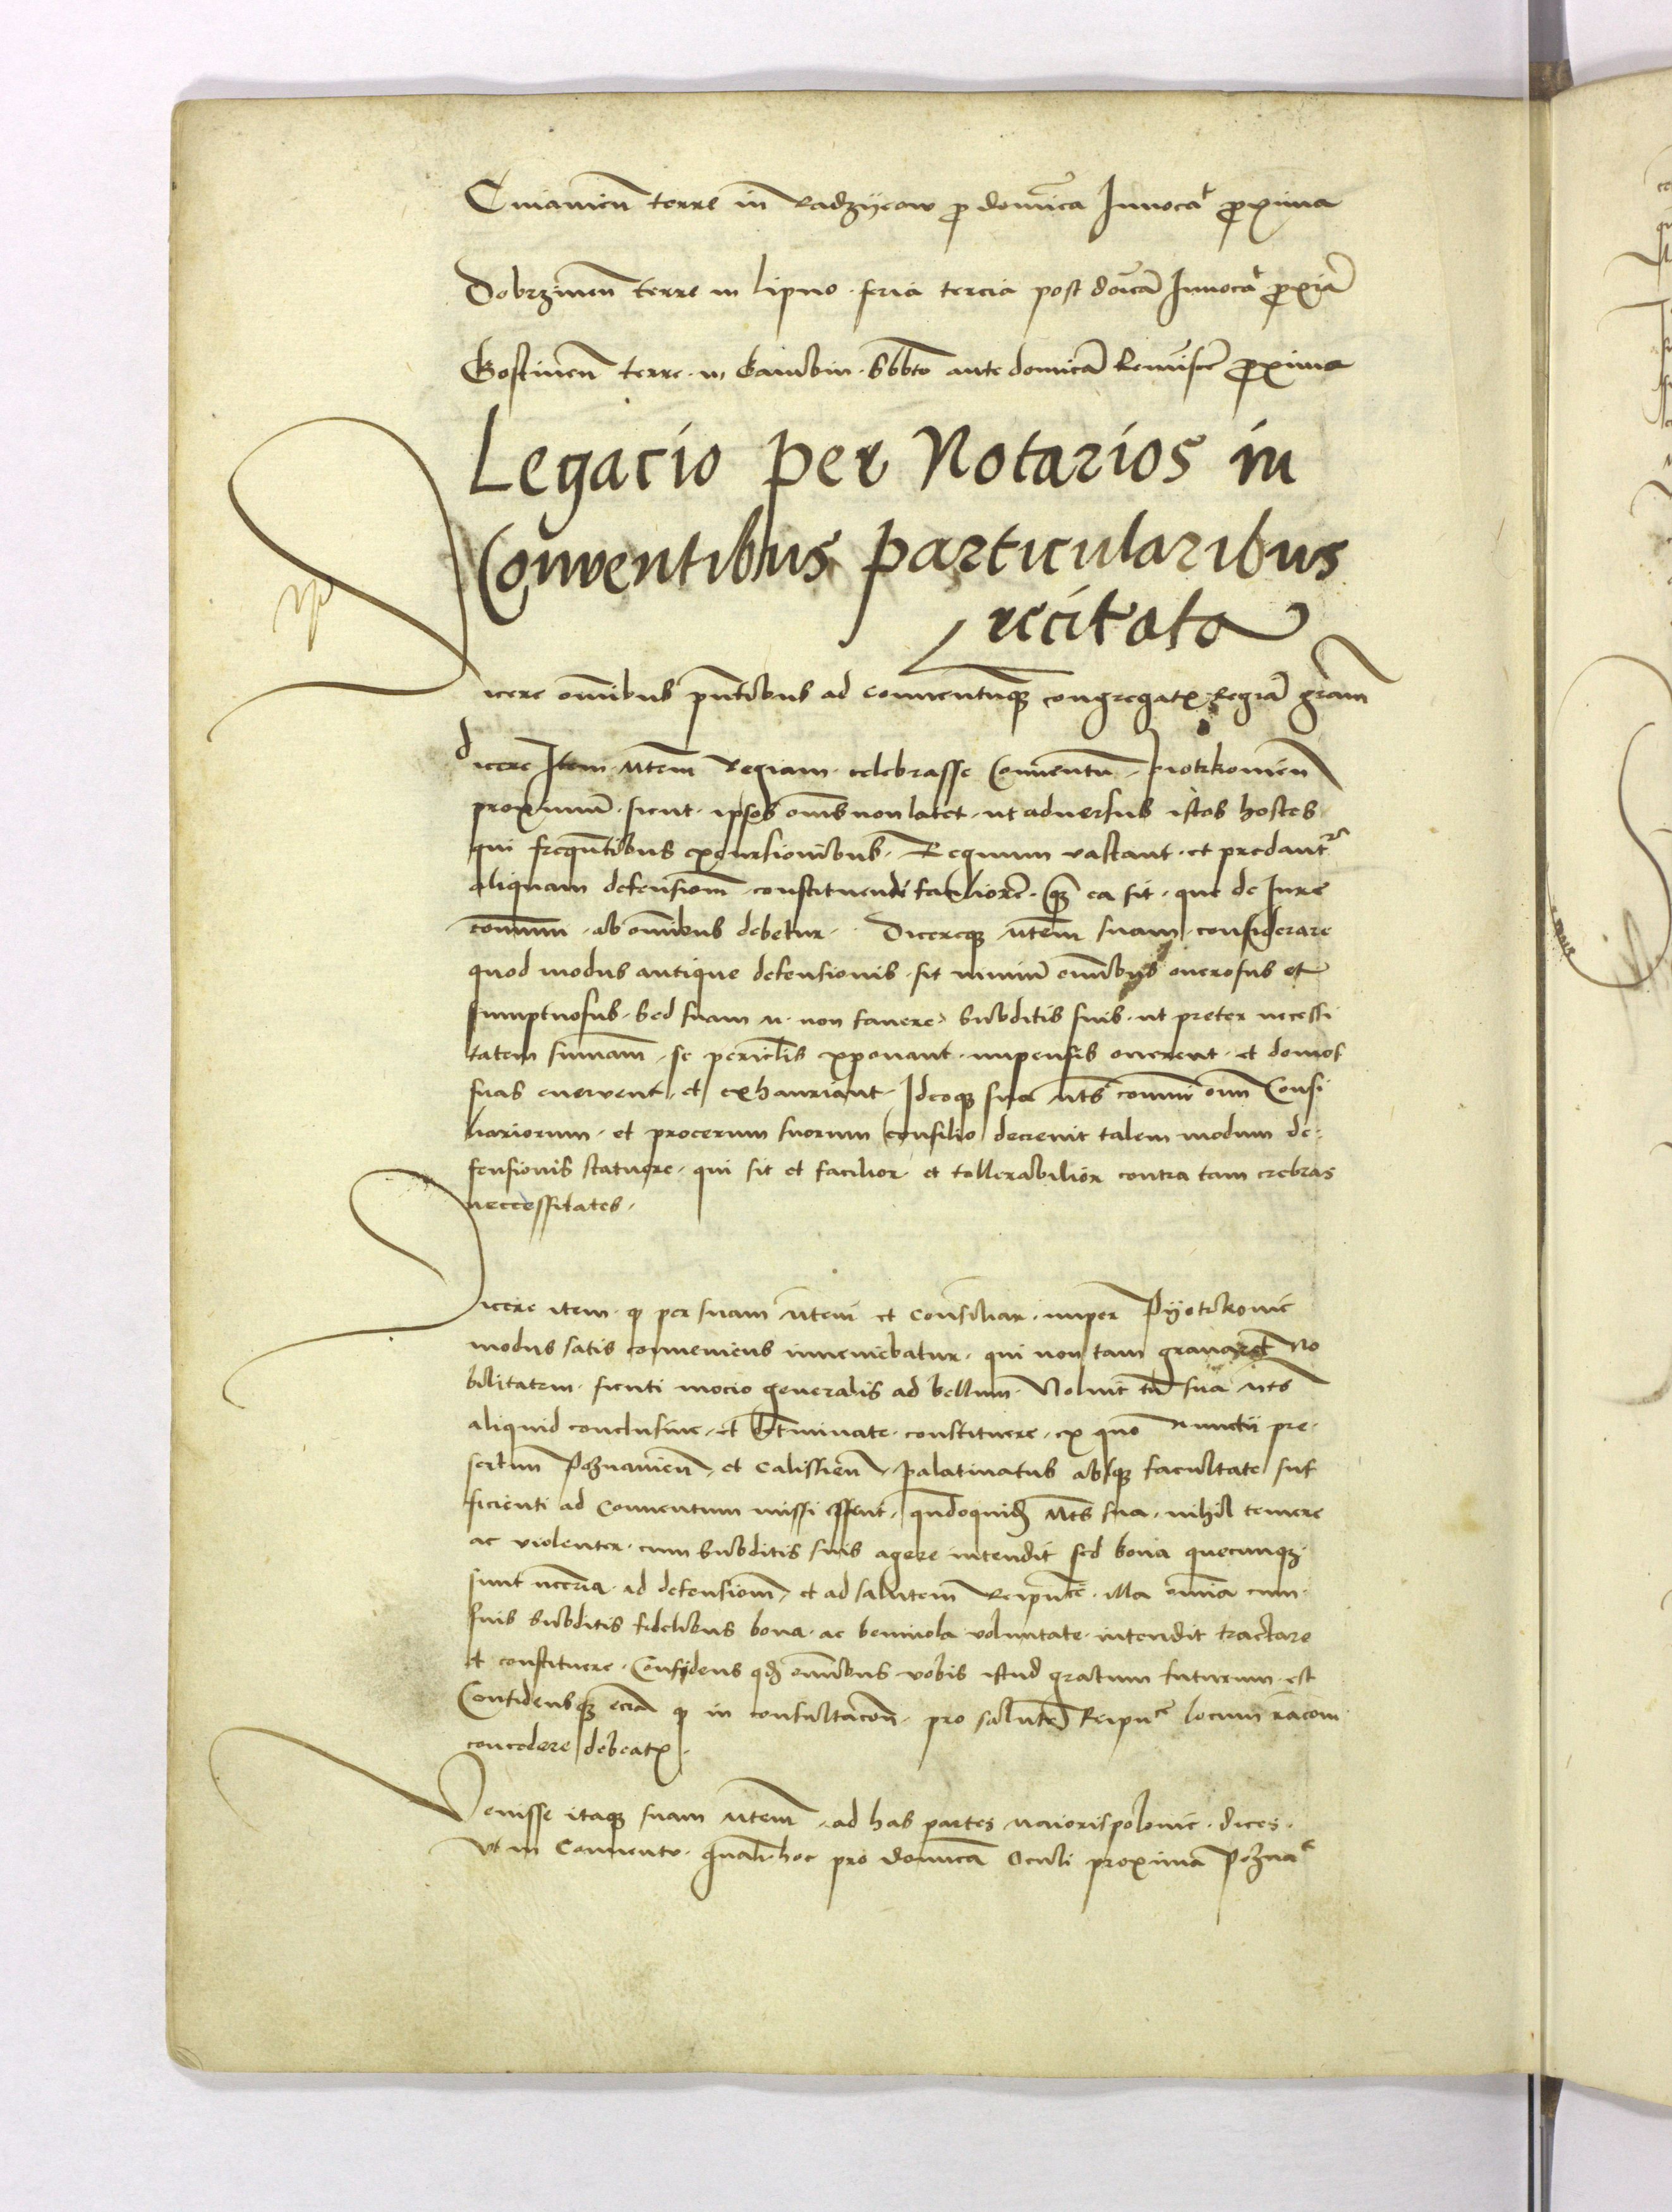 Cuiavien̄ terre in Radzÿeow ꝓ domica Inuocať ꝓxima
Dobrzinen̄ terre in lipno feria tercia post doīcā Inuocať ꝓxīā
Gostinen̄ terre in Gambin sbbto ante domīcā Remīscē ꝓxima
Legacio per Notarios in
Conuentibus particularibus
recitata
Dicere om̄ibus pn̄tibus ad conuentumqȝ congregatꝭ Regiā grām
dicere Item Mtem̄ Regiam celebrasse Conuentū Piotrkouien̄
proximū sicut ipsos om̄s non latet ut aduersus istos hostes
qui frequn̄tibus excursionibus Regnum vastant et predantr
aliquam defensiom̄ constituendi faciliorē qȝ ea sit que de Iure
com̄um ab om̄ibus debetur Dicereqȝ Mtem̄ suam considerare
quod modus antique defensionis sit nimiū om̄ibus onerosus et
sumptuosus Sed suam M non fauere subditis suis ut preter necessi
tatem sum̄am se periclis exponant impensis onerent et domos
suas eneruent et exhauriant Ideoqȝ sua Mts com̄i om̄ Consi
liariorum et procerum suorum consilio decreuit talem modum de
fensionis statuere qui sit et facilior et tollerabilior contra tam crebras
neccessitates
Dicere item ꝙ per suam Mtem̄ et Consiliar nuper Pÿotrkouie
modus satis conueniens inueniebatur qui non tam grauaret No
bilitatem sicuti mocio generalis ad bellum Noluit tn̄ sua Mts
aliquid conclusiue et detminate constituere ex quo nunctii pre
sertim Poznanien̄ et Calissien̄ palatinatus absqȝ facultate suf
ficienti ad Conuentum missi essent qn̄doquidē Mts sua nihil temere
ac violenter cum Subditis suis agere intendit sed bona quecunqȝ
sunt nccria ad defensiom̄ et ad salutem Reipuce illa om̄ia cum
suis Subditis fidelibus bona ac beniuola voluntate intendit tractare
et constituere Confidens qd̄ om̄ibus vobis istud gratum futurum est
Confidensqȝ eciā ꝙ in consultacōn pro salutē Reipuce locum rācom
concedere debeatꝭ
Venisse itaqȝ suam Mtem̄ ad has partes maiorispolonie dices
Vt in Conuentu gnāli hoc pro domicā Oculi proxima Pozna